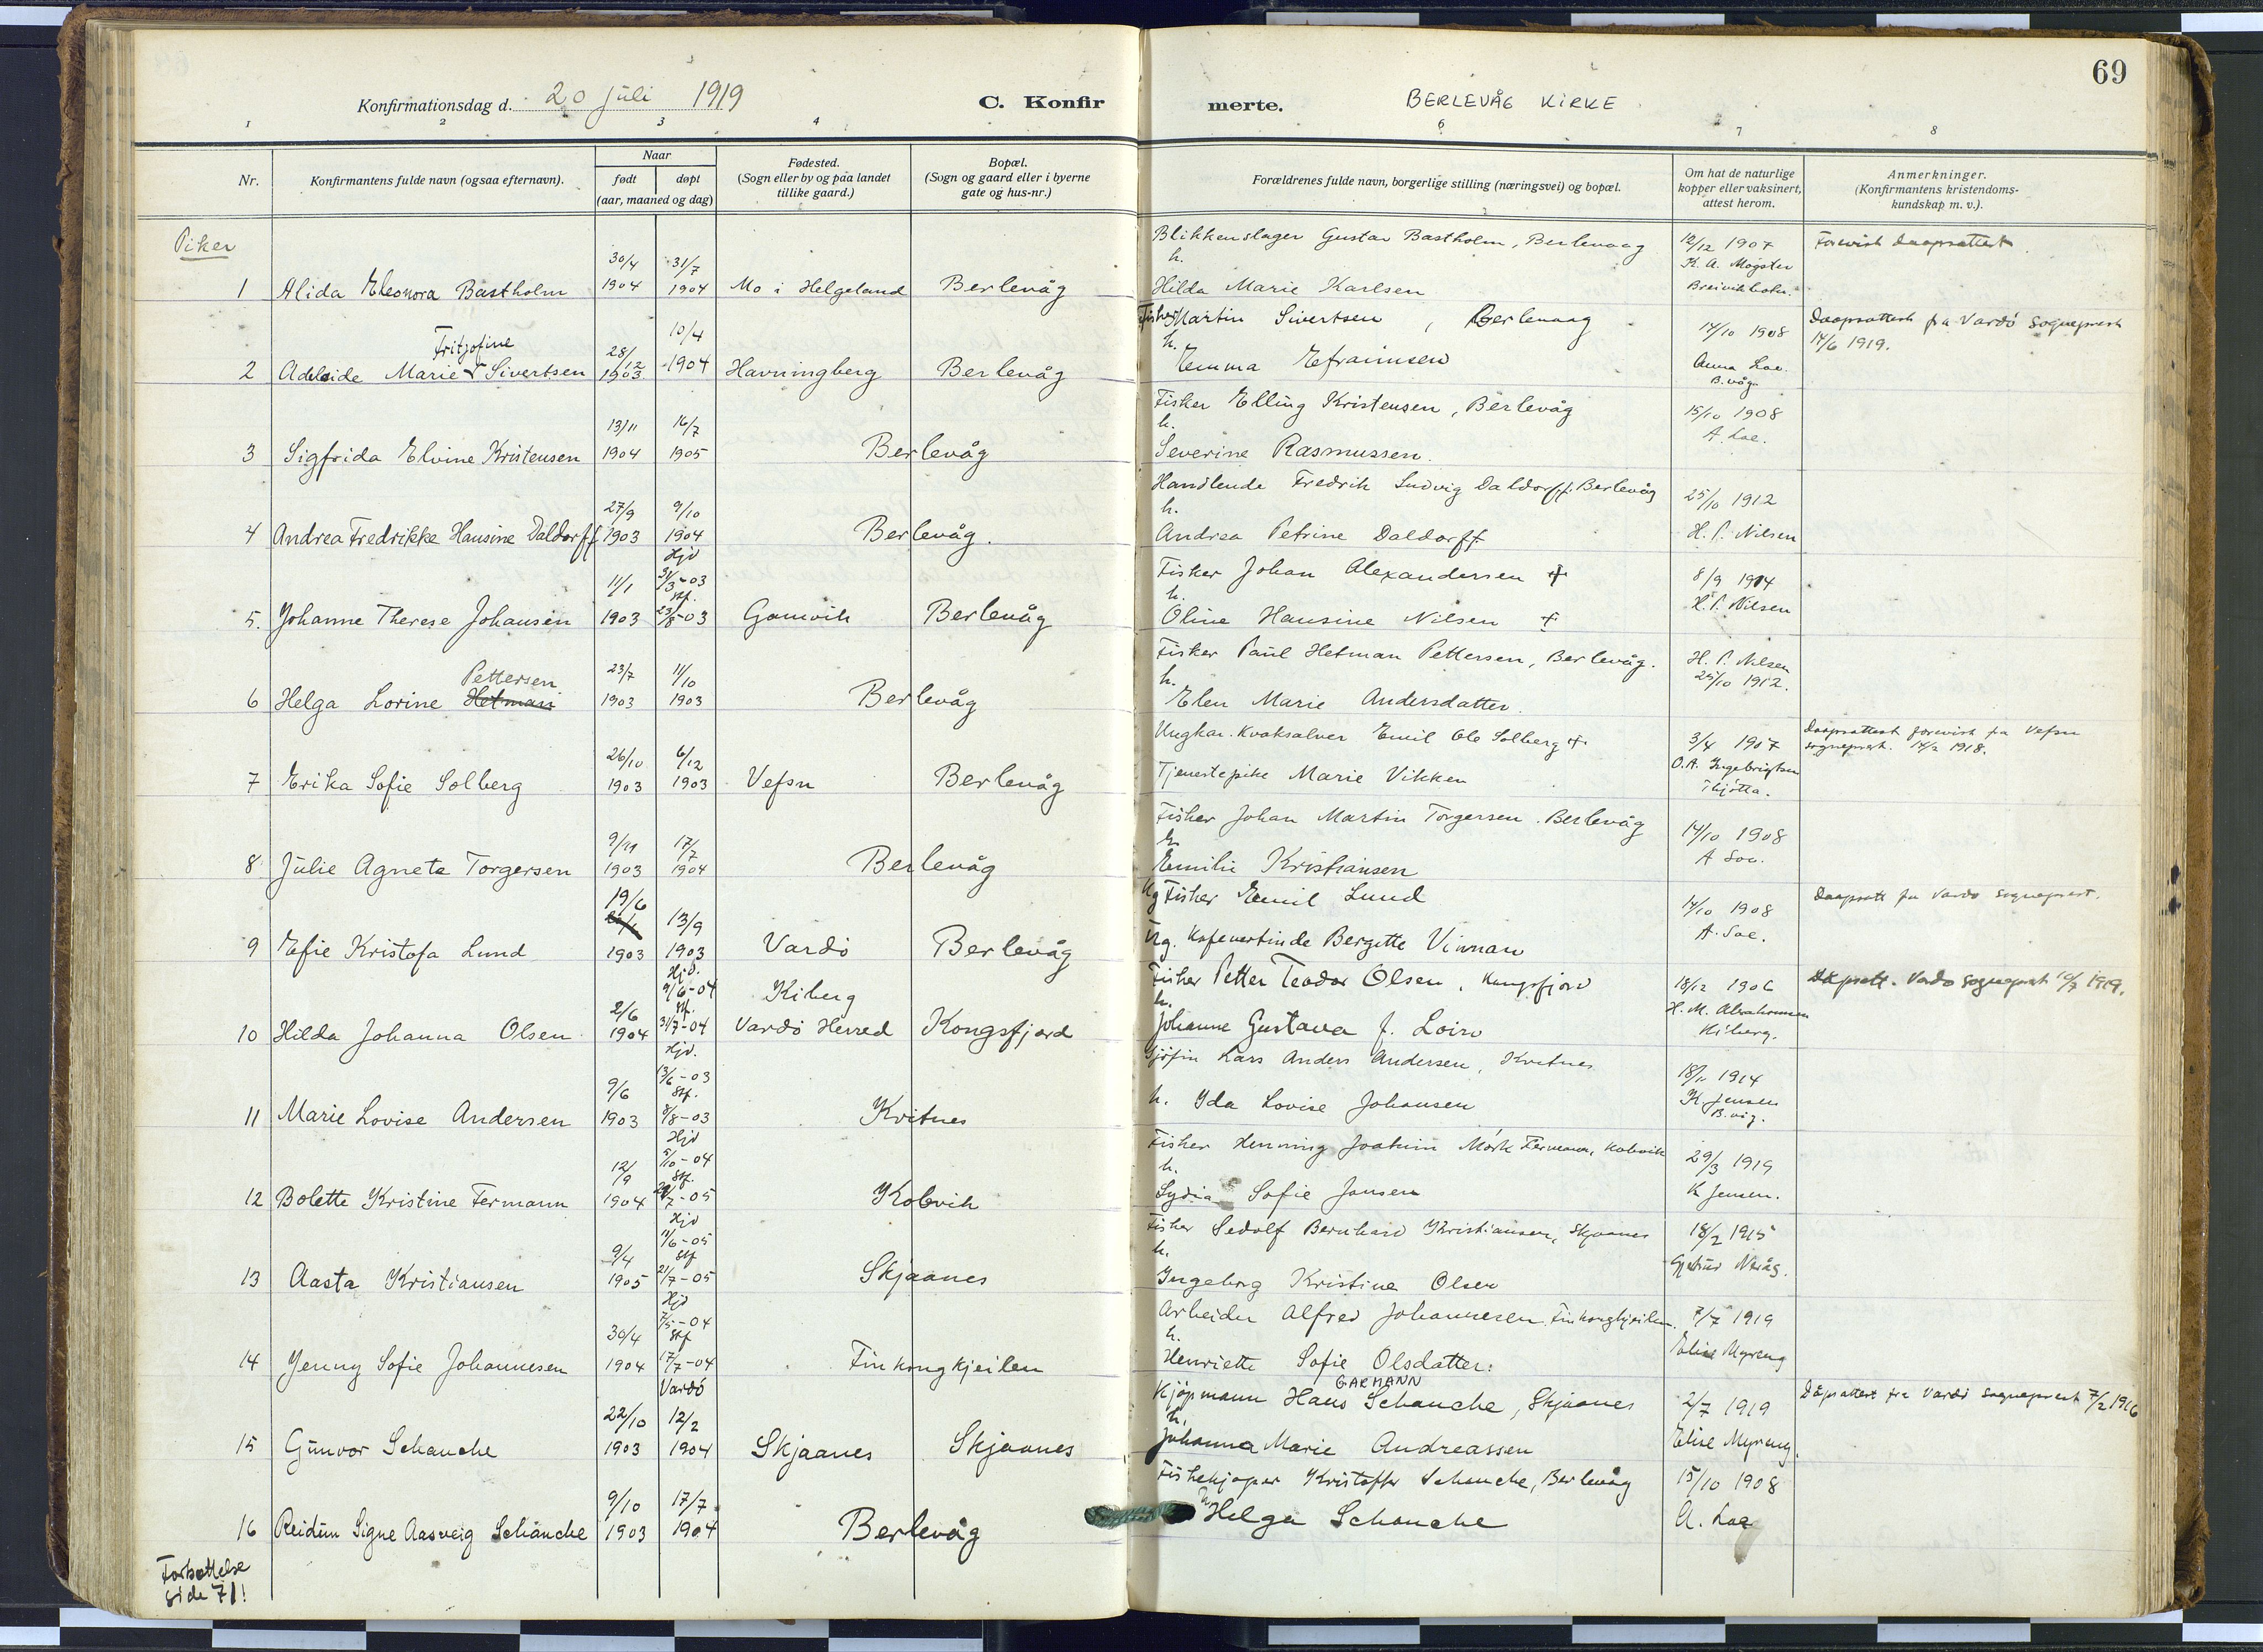 69
Konfirmationsdag d. 20 juli 1919 C. Konfir merte. BERLEVÅG KIRKE
1 2 3 4 6 7 8
Nr.
Konfirmantens fulde navn (ogsaa efternavn).
Naar
født døpt
(aar, maaned og dag)
Fødested.
(Sogn eller by og paa landet
tillike gaard.)
Bopæl.
(Sogn og gaard eller i byerne
gate og hus-nr.)
Forældrenes fulde navn, borgerlige stilling (næringsvei) og bopæl.
Om hat de naturlige
kopper eller vaksinert,
attest herom.
Anmerkninger.
(Konfirmantens kristendoms-
kundskap m. v.).
Piker
Blikkenslager Gustav Bastholm, Berlevaag 12/12 1907 Forevist daapsattest
30/4 31/7 h. K. A. Møgster
1 Alida Eleonora Bastholm 1904 1904 Mo i Helgeland Berlevåg Hilda Marie Karlsen
Fisker Martin Sivertsen, Berlevaag 14/10 1908 Daapsattest fra Vardö sogneprest
Fritjofine 28/12 10/4 h. 14/6 1919.
2 Adelaide Marie Sivertsen 1903 1904 Havningberg Berlevåg Emma Efraimsen Anna Loe. B.våg.
Fisker Elling Kristensen, Berlevåg 15/10 1908
13/11 16/7 h. A. Loe.
3 Sigfrida Elvine Kristensen 1904 1905 Berlevåg Severine Rasmussen.
Handlende Fredrik Ludvig Daldorff, Berlevåg 25/10 1912
27/9 9/10 h.
4 Andrea Fredrikke Hansine Daldorff 1903 1904 Berlevåg. Andrea Petrine Daldorff H. P. Nilsen
Hjd Fisker Johan Alexandersen + 8/9 1914
11/1 31/3-03 stf. h. H. P. Nilsen
5. Johanne Therese Johansen 1903 23/8-03 Gamvik Berlevåg Oline Hansine Nilsen +
Fisker Paul Hetman Pettersen, Berlevåg. H. P. Nilsen
Pettersen 23/7 11/10 h. 25/10 1912.
6 Helga Lorine Hetman 1903 1903 Berlevåg Elen Marie Andersdatter.
Ungkar. Kvaksalver Emil Ole Solberg + 3/4 1907 Daapsattest forevist fra Vefsn
26/10 6/12 O. A. Ingebrigtsen sogneprest. 14/2 1918.
7 Erika Sofie Solberg 1903 1903 Vefsn Berlevåg Tjenestepike Marie Vikken Thjötta.
Fisker Johan Martin Torgersen. Berlevåg 14/10 1908
9/11 17/7 h. A Loe.
8 Julie Agnete Torgersen 1903 1904 Berlevåg Emilie Kristiansen
19/6 13/9 Ug Fisker Emil Lund 14/10 1908 Daapsatt fra Vardö sogneprest.
9 Efie Kristofa Lund 1903 1903 Vardö Berlevåg Ug. Kafevertinde Bergitte Vinnan A. Loe.
Hjd. Fisker Petter Teodor Olsen, Kongsfjord 18/12 1906 Dåpsatt. Vardö sogneprest 10/7 1919.
2/6 9/6-04 stf. Kiberg h. H. M. Abrahamsen
10 Hilda Johanna Olsen 1904 31/7-04 Vardö Herred Kongsfjord Johanne Gustava f. Loiso Kiberg.
Hjd. Gjöfin Lars Anders Andersen, Kvitnes 18/11 1914
9/6 13/6-03 stf. K. Jensen
11 Marie Lovise Andersen 1903 8/8-03 Kvitnes h. Ida Lovise Johansen B. våg.
Hjd Fisker Henning Joakim Mörk Fermann, Kobvik 29/3 1919
12/9 5/10-04 stf. h.
12 Bolette Kristine Fermann 1904 7-05 Kobvik Lydia Sofie Jansen K Jensen.
Hjd Fisker Sedolf Bernhard Kristiansen, Skjaanes 18/2 1915
9/4 11/6-05 stf h.
13 Aasta Kristiansen 1905 21/7-05 Skjaanes Ingeborg Kristine Olsen
Hjd Arbeider Alfred Johannesen, Finkongkjeilen. 7/7 1919
30/4 7/5-04 stf h.
14 Jenny Sofie Johannesen 1904 17/7-04 Finkongkjeilen Henriette Sofie Olsdatter: Elise Myreng
Vardö GARMANN
Kjöpmann Hans Schanche, Skjaanes 2/7 1919 Dåpsattest fra Vardö sogneprest 7/2 1916
22/10 12/2 h.
15 Gunvor Schanche 1903 1904 Skjaanes Skjaanes Johanna Marie Andreassen Elise Myreng.
Fiskekjøper Kristoffer Schanche, Berlevåg 15/10 1908
9/10 17/7 h
16 Reidun Signe Aasveig Schanche 1903 1904 Berlevåg Helga Schanche A. Loe
Fortsættelse
side 71!